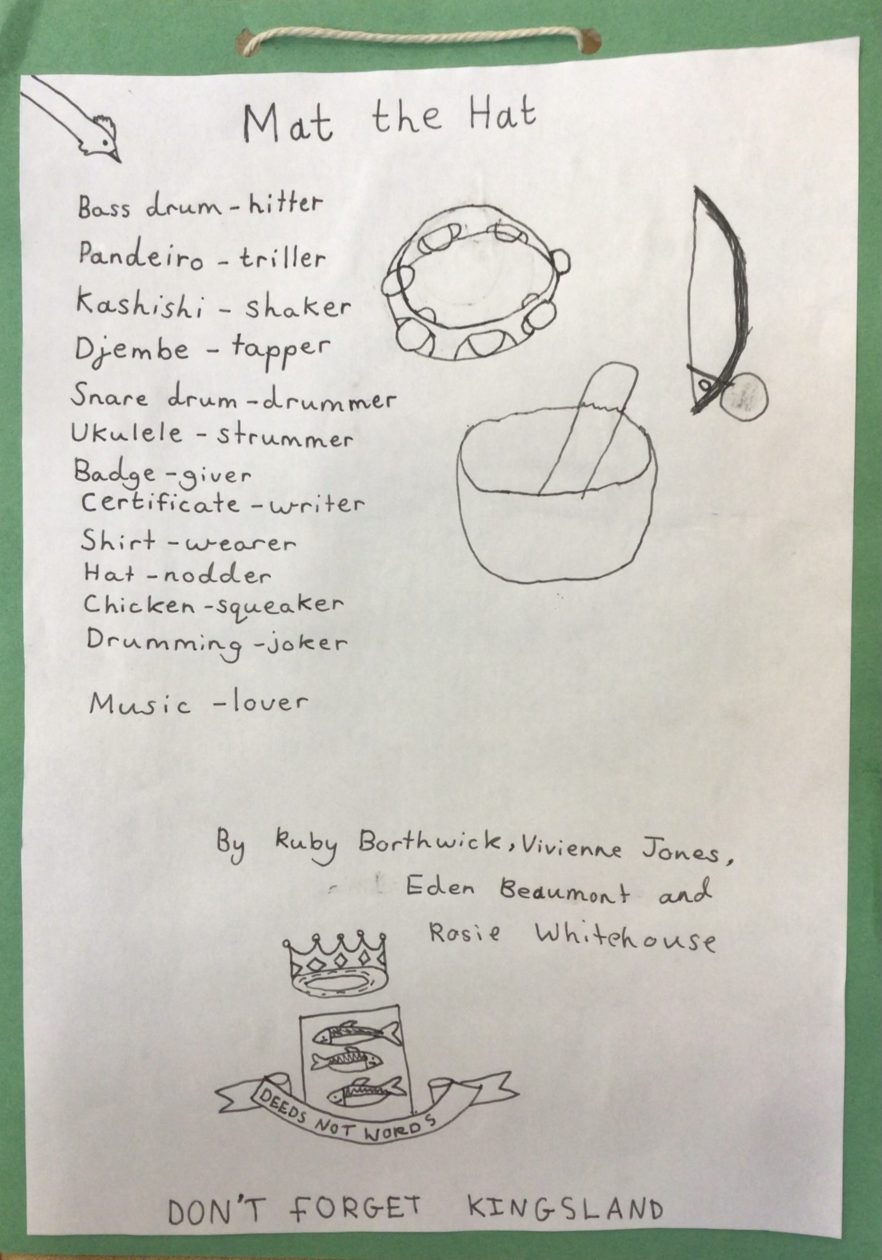 Mat the Hat
Bass drum - hitter
Pandeiro - triller
Kashishi - shaker
Djembe - tapper
Snare drum - drummer
Ukulele - strummer
Badge - giver
Certificate - writer
Shirt - wearer
Hat - nodder
Chicken - squeaker
Drumming - joker
Music - lover
By Ruby Borthwick, Vivienne Jones,
Eden Beaumont and
Rosie Whitehouse
DEEDS NOT WORDS
DON'T FORGET KINGSLAND